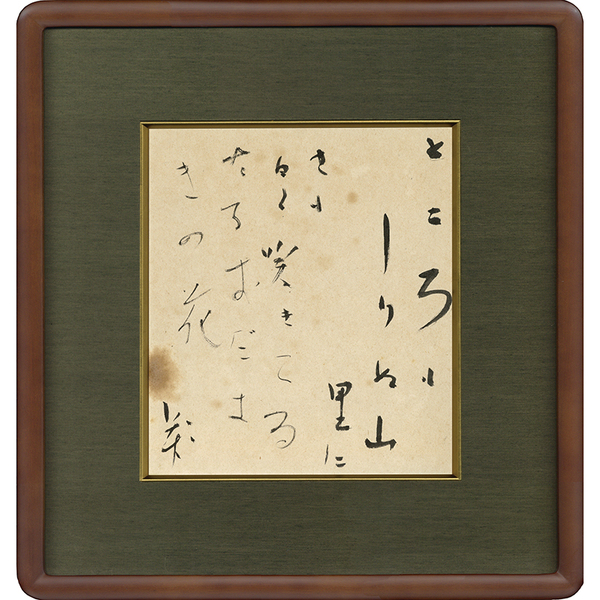 ところも
しらぬ山
里に
さも
白く咲きてゐ
たるをだま
きの花